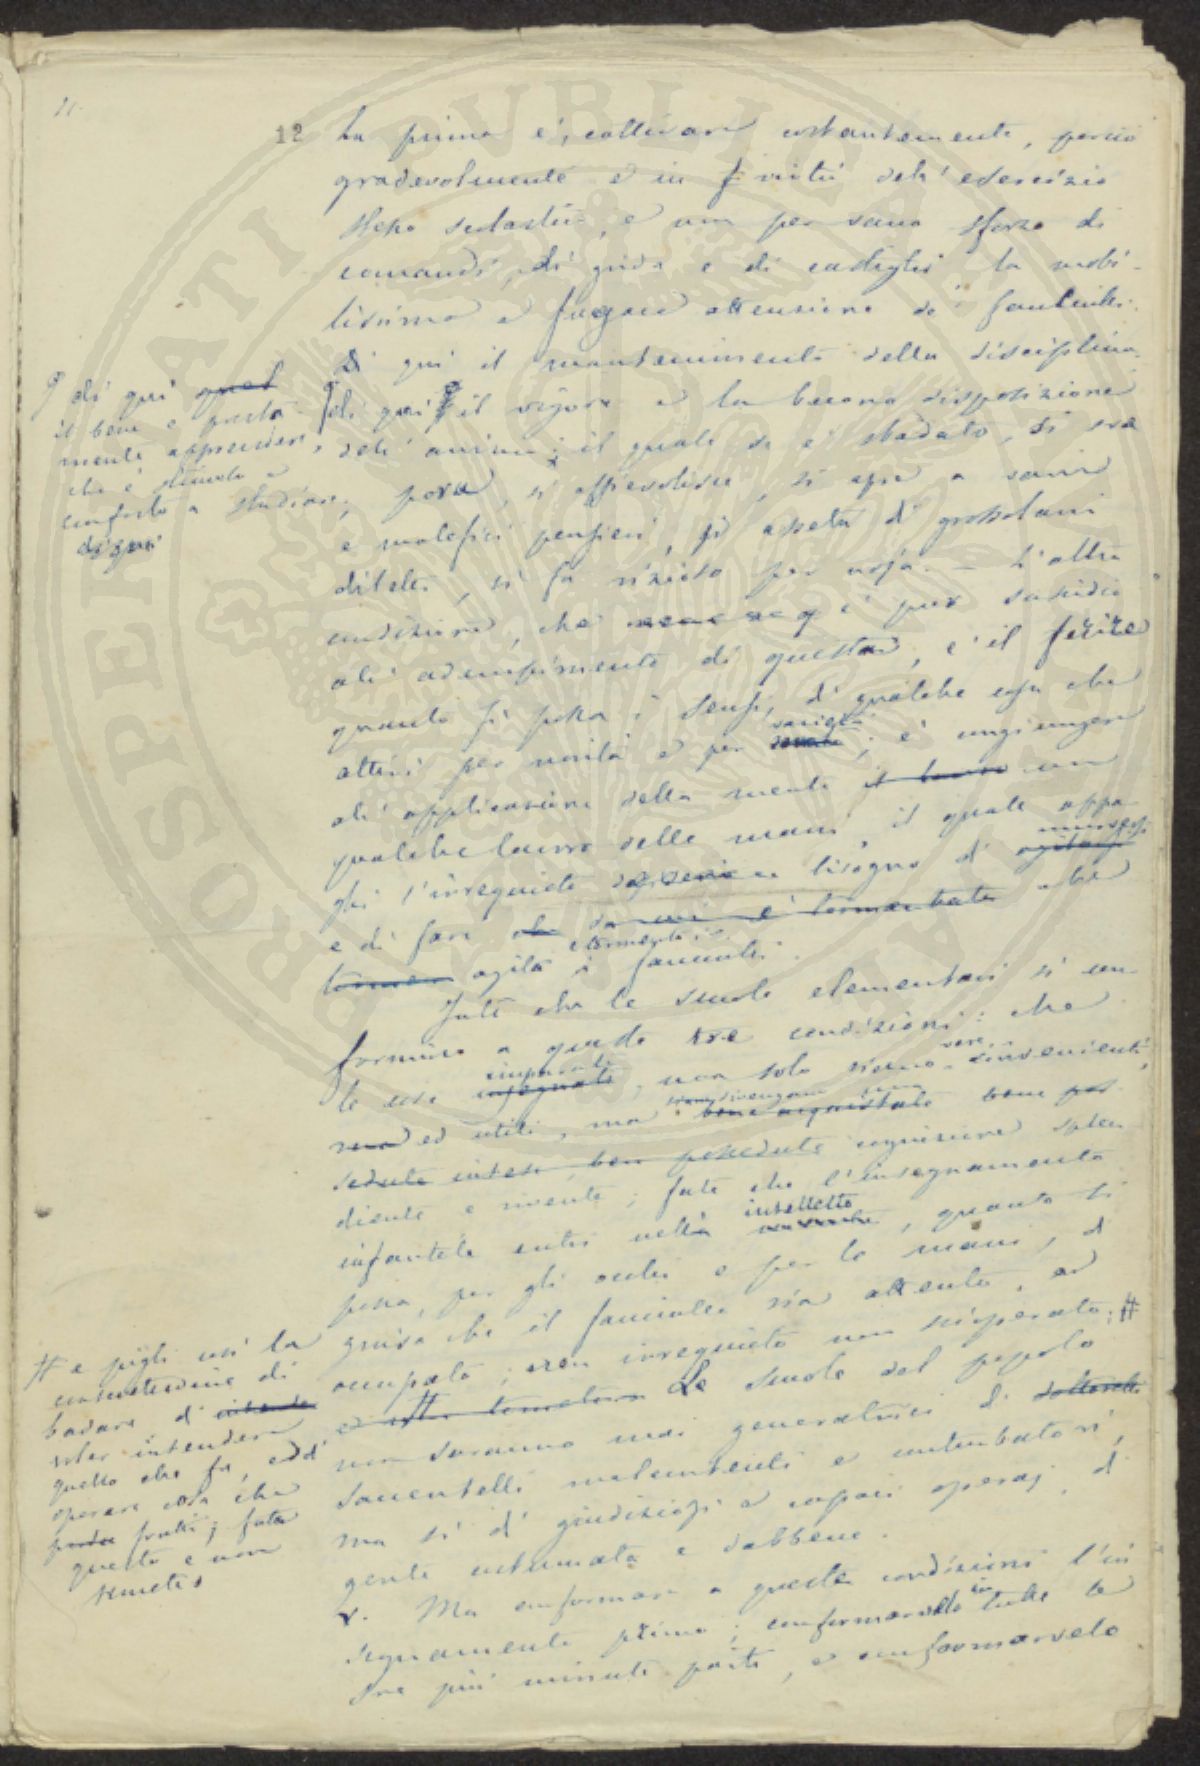 11.
12
La prima è, coltivare costantemente, perciò
gradevolmente e in virtù dell'esercizio
stesso scolastico, e non per vano sforzo di
comandi, di grida e di castighi la mobi-
lissima e fugace attenzione de' fanciulli.
Di qui il mantenimento della disciplina,
di qui il vigore e la buona disposizione
dell'animo; il quale se è sbadato, si sva
pora, si affievolisce, si apre a vani
e malefici pensieri, si asseta di grossolani
diletti, si fa vizioso per noja. — L'altra
condizione, che è pur sussidio
all'adempimento di questa, è il ferire
quanto si possa i sensi, di qualche cosa che
attiri per novità e per varietà; è congiungere
all'applicazione della mente il lavoro un
qualche lavoro delle mani, il quale appa
ghi l'irrequieto bisogno di muoversi
e di fare che da cui è tormentato che
agita e tormenta i fanciulli.
Fate che le scuole elementari si con
formino a queste tre condizioni: che
le cose insegnate imparate, non solo siano vere, convenienti,
ed utili, ma divengano bene acquistate bene pos
sedute intese, ben possedute cognizione splen
diente e vivente; fate che l'insegnamento
infantile entri nell' intelletto, quanto si
possa, per gli occhi e per le mani, di
guisa che il fanciullo sia attento, ed
occupato; non irrequieto non scioperato; #
Le scuole del popolo
non saranno mai generatrici di dottorelli
saccentelli malcontenti e conturbatori,
ma sì di giudiziosi e capaci operaj, di
gente costumata e dabbene.
V. Ma conformare a queste condizioni l'in
segnamento primo; conformarvelo in tutte le
sue più minute parti, e conformarvelo
di qui quel
il bene e presta
mente apprendere,
che è stimolo e
conforto a studiare;
di qui
# e pigli così la
consuetudine di
badare, di intende
voler intendere
quello che fa, ed
operare cosa che
frutti; fate
questo e non
temete